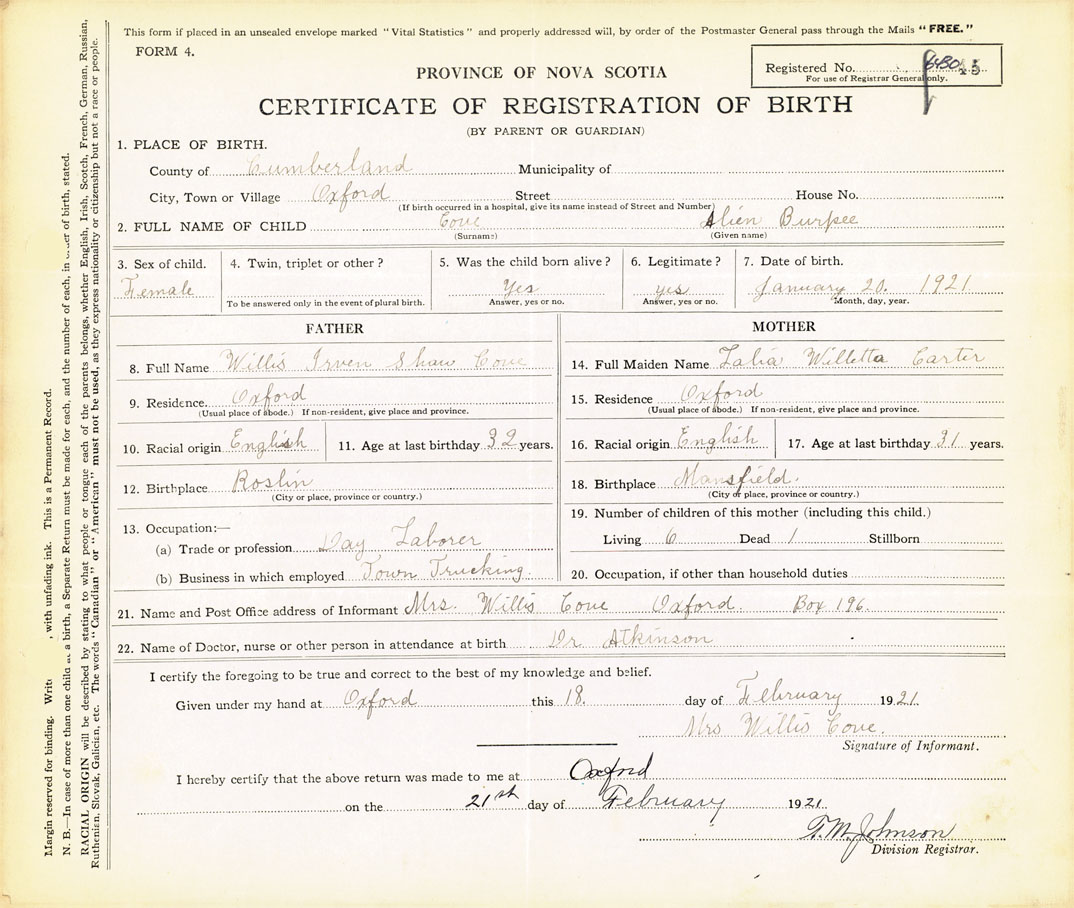 This form if placed in an unsealed envelope marked "Vital Statistics" and properly addressed will, by order of the Postmaster General pass through the Mails "FREE."
FORM 4.
PROVINCE OF NOVA SCOTIA
Registered No.
For use of Registrar General only.
CERTIFICATE OF REGISTRATION OF BIRTH
(BY PARENT OR GUARDIAN)
1. PLACE OF BIRTH.
County of Cumberland Municipality of
City, Town or Village Oxford Street House No.
(If birth occurred in a hospital, give its name instead of Street and Number)
2. FULL NAME OF CHILD Cove Alien Burpee
(Surname) (Given name)
3. Sex of child. 4. Twin, triplet or other? 5. Was the child born alive? 6. Legitimate? 7. Date of birth.
Female Yes yes January 20. 1921
To be answered only in the event of plural birth. Answer, yes or no. Answer, yes or no. Month, day, year.
FATHER
8. Full Name Willis Irven Shaw Cove
9. Residence. Oxford
(Usual place of abode.) If non-resident, give place and province.
10. Racial origin English 11. Age at last birthday 32 years.
12. Birthplace Roslin
(City or place, province or country.)
13. Occupation:—
(a) Trade or profession Day Laborer
(b) Business in which employed Town Trucking.
MOTHER
14. Full Maiden Name Zalia Willetta Carter
15. Residence Oxford
(Usual place of abode.) If non-resident, give place and province.
16. Racial origin English 17. Age at last birthday 31 years.
18. Birthplace Mansfield.
(City or place, province or country.)
19. Number of children of this mother (including this child.)
Living 6 Dead 1 Stillborn
20. Occupation, if other than household duties
21. Name and Post Office address of Informant Mrs. Willis Cove Oxford. Box 196.
22. Name of Doctor, nurse or other person in attendance at birth Dr. Atkinson
I certify the foregoing to be true and correct to the best of my knowledge and belief.
Given under my hand at Oxford this 18. day of February 1921.
Mrs Willis Cove.
Signature of Informant.
I hereby certify that the above return was made to me at Oxford
on the 21st day of February 1921
T. M. Johnson
Division Registrar.
Margin reserved for binding. , with unfading ink. This is a Permanent Record.
N. B.—In case of more than one child a birth, a Separate Return must be made for each, and the number of each, in of birth, stated.
RACIAL ORIGIN will be described by stating to what people or tongue each of the parents belongs, whether English, Irish, Scotch, French, German, Russian,
Ruthenian, Slovak, Galician, etc. The words "Canadian" or "American" must not be used, as they express nationality or citizenship but not a race or people.